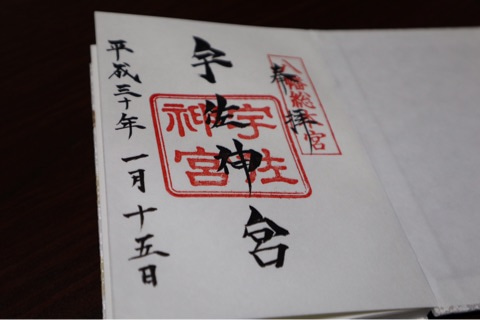 八幡総本宮
奉拝
宇佐神宮
宇佐
神宮
平成三十年一月十五日